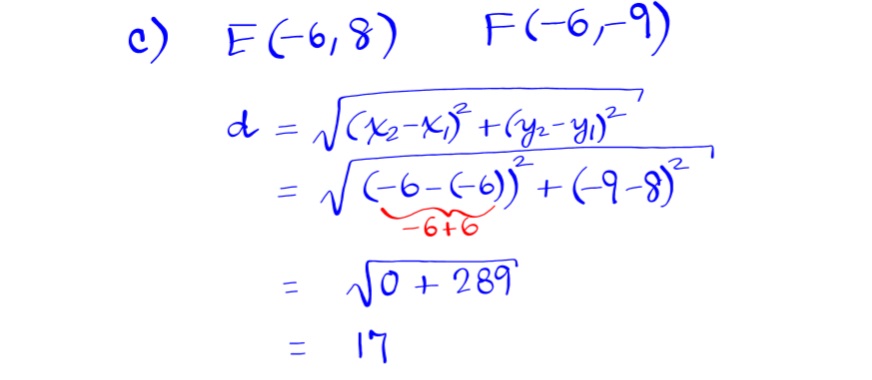 c) E(-6,8) F(-6,-9)
d = √((x₂-x₁)² + (y₂-y₁)²)
= √((-6-(-6))² + (-9-8)²)
-6+6
= √(0 + 289)
= 17